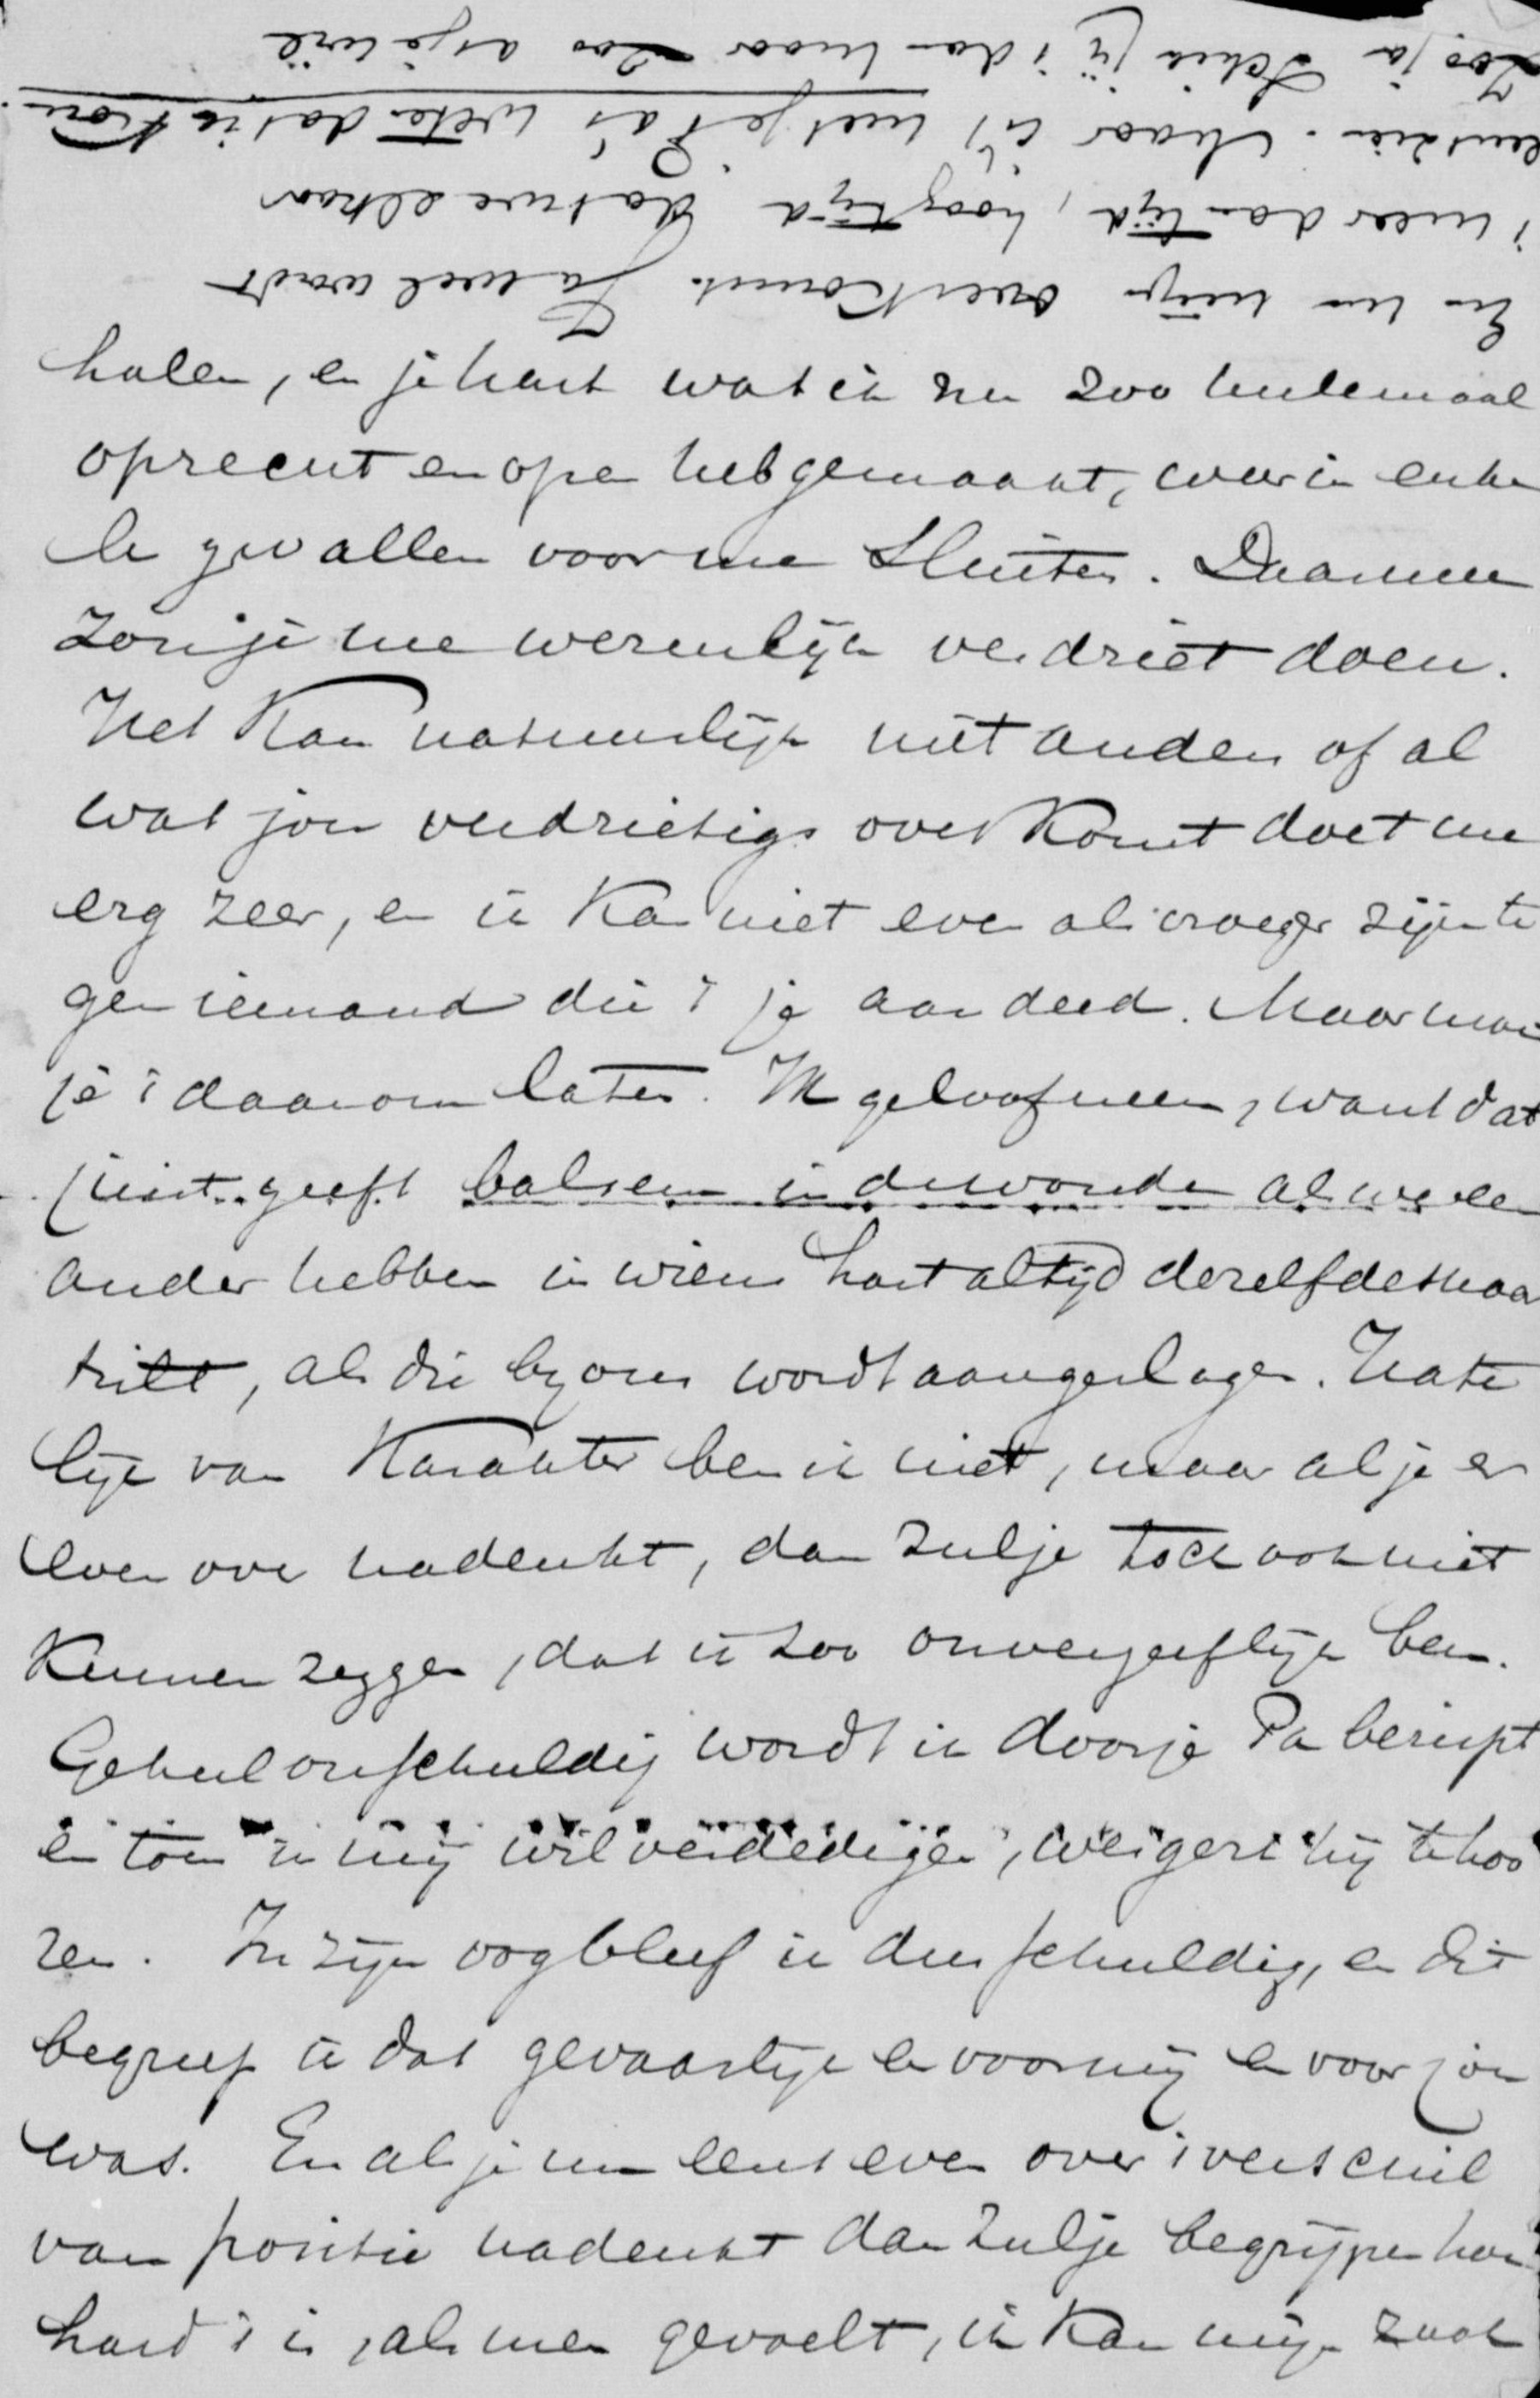 halen, en je hart wat ik nu zoo heelemaal
oprecht en open heb gemaakt, weer in enke
le gevallen voor me sluiten. Daarmee
zou je me wezenlijk verdriet doen.
Het kan natuurlijk niet anders of al
wat jou verdrietigs overkomt doet me
erg zeer, en ik kan niet even als vroeger zijn te
gen iemand die 't je aandeed. Maar moe
je 't daarom laten. Ik geloof neen, want dat
juist geeft balsem in de wonden als we een
ander hebben in wiens hart altijd dezelfde snaar
trilt, als die by ons wordt aangeslagen. Hate
lijk van karakter ben ik niet, maar als je er
even over nadenkt, dan zul je toch ook niet
kunnen zeggen, dat ik zoo onvergeeflijk ben.
Geheel onschuldig wordt ik door je Pa berispt
en toen ik mij wil verdedigen, weigert hij te hoo
ren. In zijn oog bleef ik dus schuldig, en dit
begreep ik dat gevaarlijk en voor mij en voor jou
was. En als je nu eens even over 't verschil
van positie nadenkt dan zul je begrijpen hoe
hard 't is, als men gevoelt, ik kan mijn zaak
En nu mijn overkomst. Ja wel wordt
't meer dan tijd, hoog tijd dat we elkaar
eens zien. Maar ik moet je Pa's weten dat ik kom.
Zoo ja schik jij 't dan maar zoo als je wil